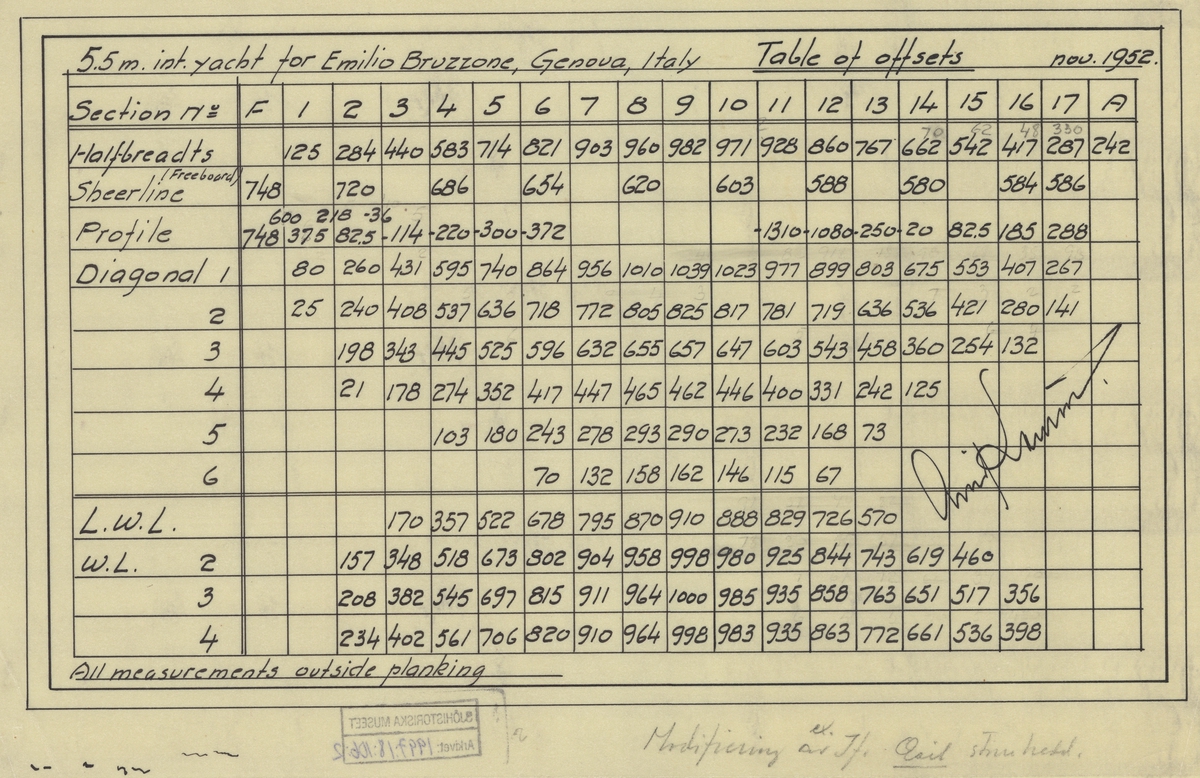 5.5 m. int. yacht for Emilio Bruzzone, Genova, Italy Table of offsets nov. 1952.
Section No F 1 2 3 4 5 6 7 8 9 10 11 12 13 14 15 16 17 A
70 62 48 330
Halfbreadts 125 284 440 583 714 821 903 960 982 971 928 860 767 662 542 417 287 242
Sheerline (Freeboard) 748 720 686 654 620 603 588 580 584 586
600 218 -36
Profile 748 375 82.5 -114 -220 -300 -372 -1310 -1080 -250 -20 82.5 185 288
Diagonal 1 80 260 431 595 740 864 956 1010 1039 1023 977 899 803 675 553 407 267
2 25 240 408 537 636 718 772 805 825 817 781 719 636 536 421 280 141
3 198 343 445 525 596 632 655 657 647 603 543 458 360 254 132
4 21 178 274 352 417 447 465 462 446 400 331 242 125
5 103 180 243 278 293 290 273 232 168 73
6 70 132 158 162 146 115 67
L.W.L. 170 357 522 678 795 870 910 888 829 726 570
W.L. 2 157 348 518 673 802 904 958 998 980 925 844 743 619 460
3 208 382 545 697 815 911 964 1000 985 935 858 763 651 517 356
4 234 402 561 706 820 910 964 998 983 935 863 772 661 536 398
All measurements outside planking
SJÖHISTORISKA MUSEET
Arkivet: 1997:18:106:2
Modifiering ex.